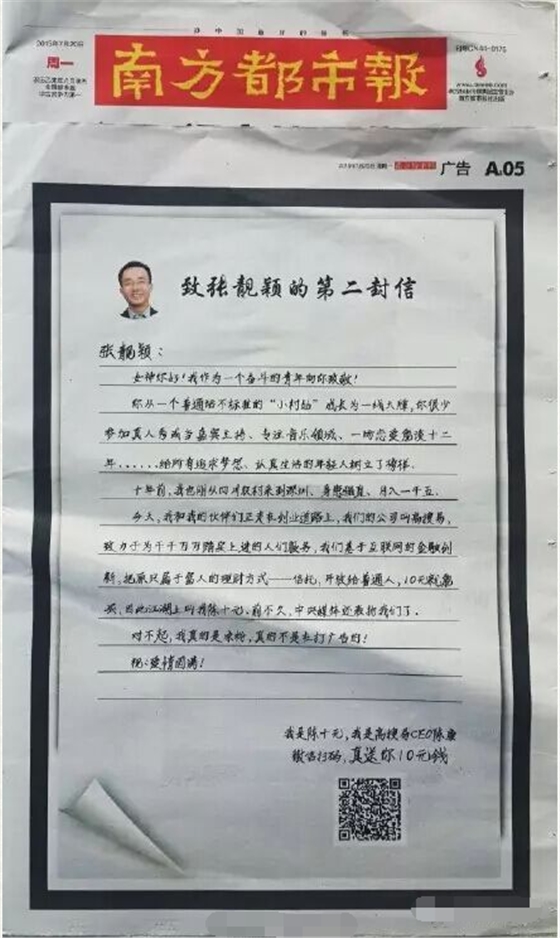 2015年7月20日
周一
南方都市報
广告 A05
致张靓颖的第二封信
张靓颖：
女神你好！我作为一个奋斗的青年向你致敬！
你从一个普通话不标准的“小村姑”成长为一线大牌，你很少
参加真人秀或当嘉宾主持、专注音乐领域、一场恋爱爱谈十二
年......给所有追求梦想、认真生活的年轻人树立了榜样。
十年前，我也刚从四川农村来到深圳、身患强直、月入一千五。
今天，我和我的伙伴们正走在创业道路上，我们的公司叫高搜易，
致力于为千千万万踏实上进的人们服务，我们基于互联网的金融创
新，把原只属于富人的理财方式——信托，开放给普通人，10元就能
买，因此江湖上叫我陈十元，前不久，中央媒体还表扬我们了。
对不起，我真的是来粉，真的不是在打广告的！
祝：爱情圆满！
我是陈十元，我是高搜易CEO陈康
微信扫码，真送你10元钱